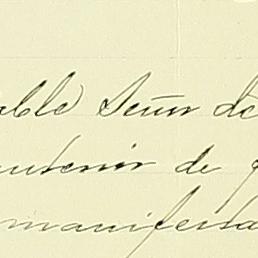 able Señor de
anterior de
manifesta